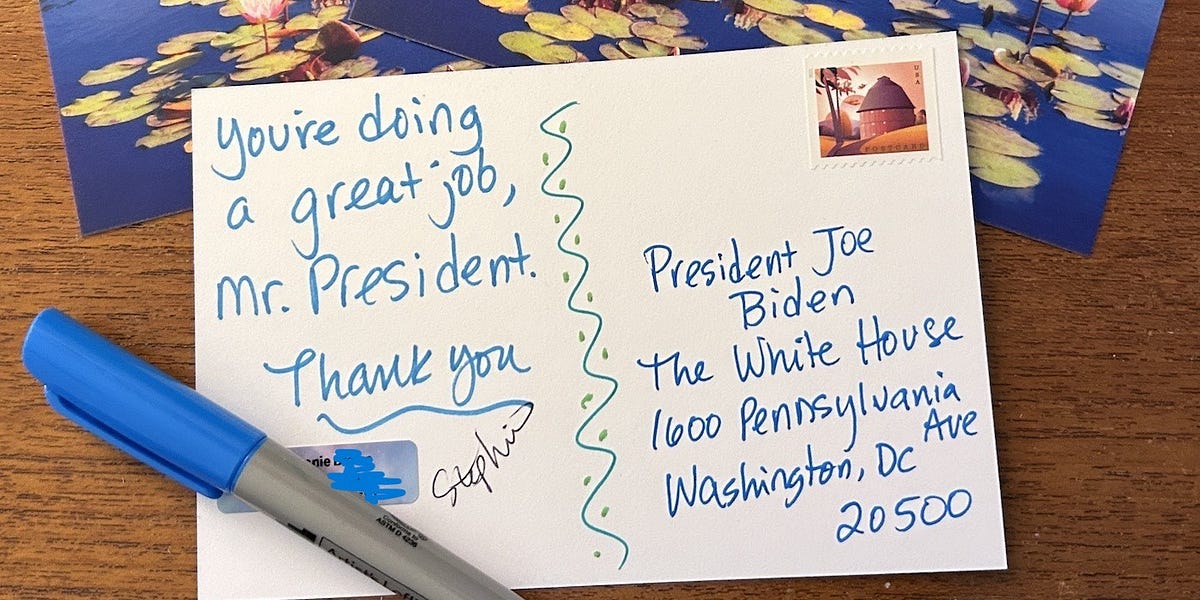 You're doing
a great job,
Mr. President.
Thank you
nie B
Stephi
USA
POSTCARD
President Joe
Biden
The White House
1600 Pennsylvania
Ave
Washington, DC
20500
Conforms to
ASTM D 4236